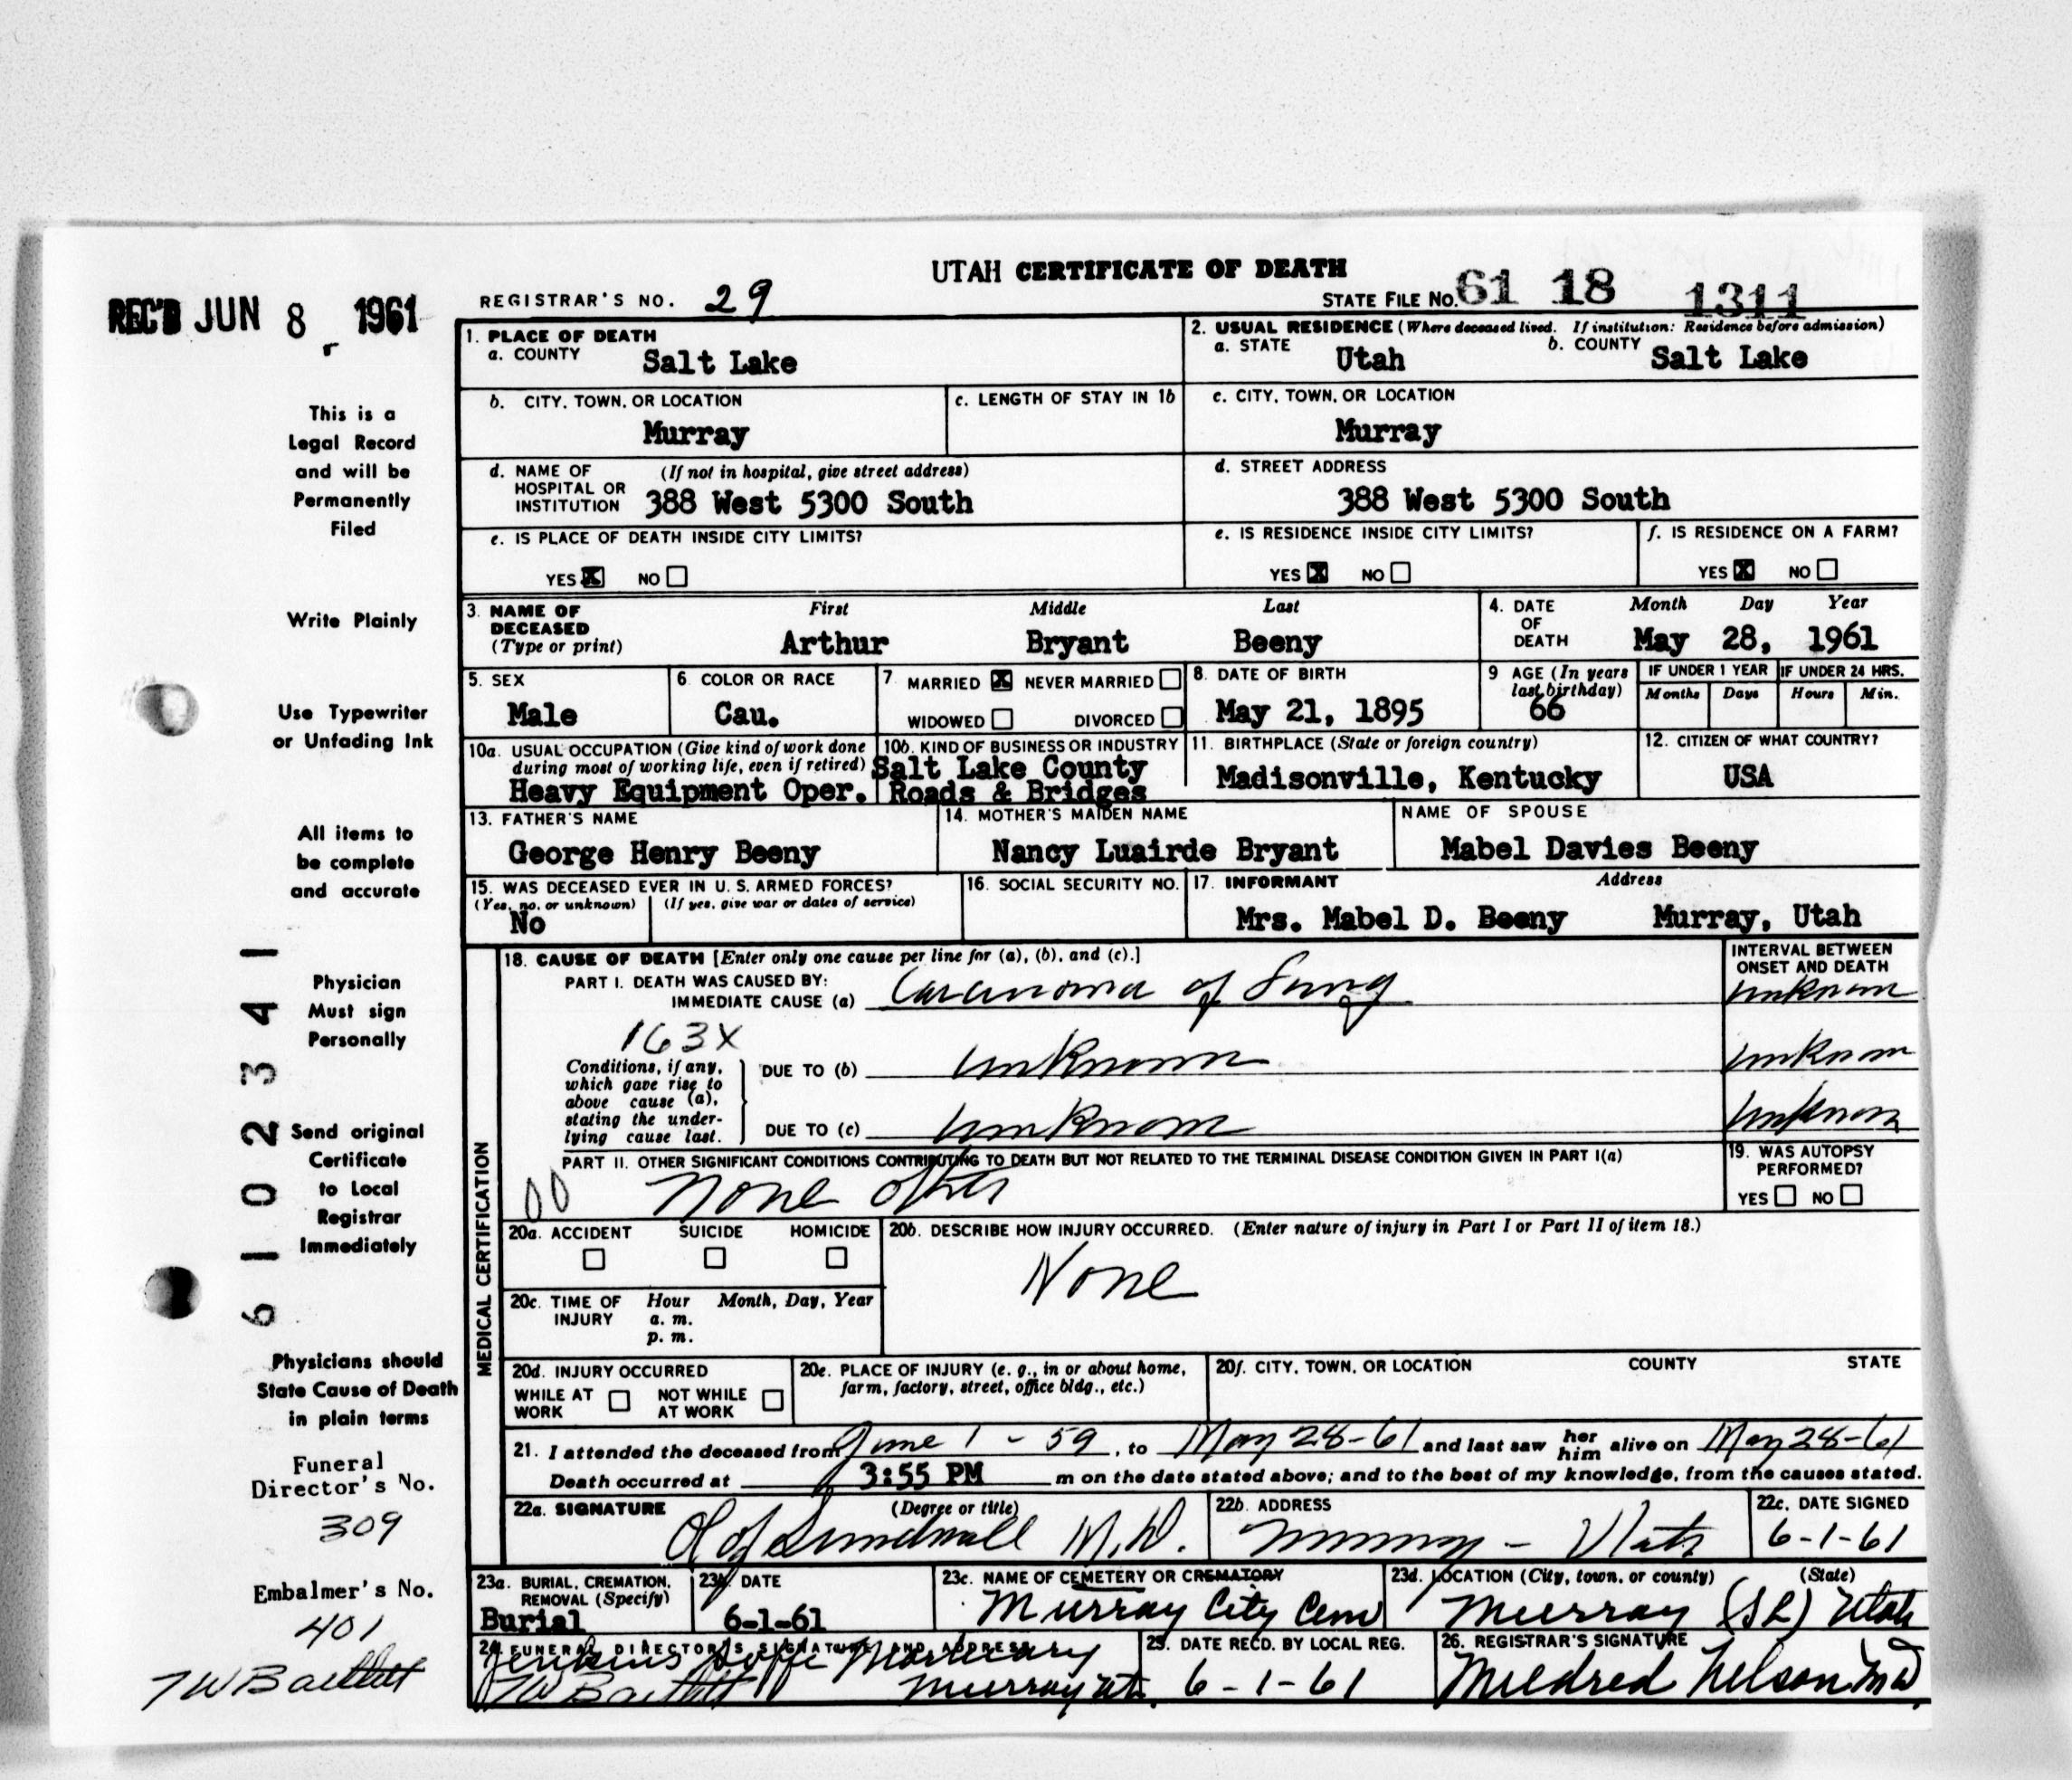 UTAH CERTIFICATE OF DEATH
REC'D JUN 8 1961
REGISTRAR'S NO. 29
STATE FILE NO. 61 18 1311
1. PLACE OF DEATH
a. COUNTY Salt Lake
2. USUAL RESIDENCE (Where deceased lived. If institution: Residence before admission)
a. STATE Utah b. COUNTY Salt Lake
b. CITY, TOWN, OR LOCATION
Murray
c. LENGTH OF STAY IN 1b
c. CITY, TOWN, OR LOCATION
Murray
d. NAME OF HOSPITAL OR INSTITUTION (If not in hospital, give street address)
388 West 5300 South
d. STREET ADDRESS
388 West 5300 South
e. IS PLACE OF DEATH INSIDE CITY LIMITS?
YES X NO
e. IS RESIDENCE INSIDE CITY LIMITS?
YES X NO
f. IS RESIDENCE ON A FARM?
YES X NO
3. NAME OF DECEASED (Type or print)
First Middle Last
Arthur Bryant Beeny
4. DATE OF DEATH
Month Day Year
May 28, 1961
5. SEX
Male
6. COLOR OR RACE
Cau.
7 MARRIED X NEVER MARRIED
WIDOWED DIVORCED
8. DATE OF BIRTH
May 21, 1895
9 AGE (In years last birthday)
66
IF UNDER 1 YEAR
Months Days
IF UNDER 24 HRS.
Hours Min.
10a. USUAL OCCUPATION (Give kind of work done during most of working life, even if retired)
Heavy Equipment Oper.
10b. KIND OF BUSINESS OR INDUSTRY
Salt Lake County
Roads & Bridges
11. BIRTHPLACE (State or foreign country)
Madisonville, Kentucky
12. CITIZEN OF WHAT COUNTRY?
USA
13. FATHER'S NAME
George Henry Beeny
14. MOTHER'S MAIDEN NAME
Nancy Luairde Bryant
NAME OF SPOUSE
Mabel Davies Beeny
15. WAS DECEASED EVER IN U. S. ARMED FORCES?
(Yes, no, or unknown) (If yes, give war or dates of service)
No
16. SOCIAL SECURITY NO.
17. INFORMANT Address
Mrs. Mabel D. Beeny Murray, Utah
18. CAUSE OF DEATH [Enter only one cause per line for (a), (b), and (c).]
INTERVAL BETWEEN ONSET AND DEATH
PART I. DEATH WAS CAUSED BY:
IMMEDIATE CAUSE (a) Carcinoma of Lung unknown
163X
Conditions, if any, which gave rise to above cause (a), stating the underlying cause last.
DUE TO (b) unknown unknown
DUE TO (c) unknown unknown
PART II. OTHER SIGNIFICANT CONDITIONS CONTRIBUTING TO DEATH BUT NOT RELATED TO THE TERMINAL DISEASE CONDITION GIVEN IN PART I(a)
00 None other
19. WAS AUTOPSY PERFORMED?
YES NO
MEDICAL CERTIFICATION
20a. ACCIDENT SUICIDE HOMICIDE
20b. DESCRIBE HOW INJURY OCCURRED. (Enter nature of injury in Part I or Part II of item 18.)
None
20c. TIME OF INJURY Hour Month, Day, Year
a. m.
p. m.
20d. INJURY OCCURRED
WHILE AT WORK NOT WHILE AT WORK
20e. PLACE OF INJURY (e. g., in or about home, farm, factory, street, office bldg., etc.)
20f. CITY, TOWN, OR LOCATION COUNTY STATE
21. I attended the deceased from June 1 - 59, to May 28-61 and last saw her him alive on May 28-61
Death occurred at 3:55 PM m on the date stated above; and to the best of my knowledge, from the causes stated.
22a. SIGNATURE (Degree or title)
M.D.
22b. ADDRESS
Murray - Utah
22c. DATE SIGNED
6-1-61
23a. BURIAL, CREMATION, REMOVAL (Specify)
Burial
23b. DATE
6-1-61
23c. NAME OF CEMETERY OR CREMATORY
Murray City Cem
23d. LOCATION (City, town, or county) (State)
Murray (SL) Utah
24. FUNERAL DIRECTOR'S SIGNATURE AND ADDRESS
Mortuary
Murray Ut.
25. DATE RECD. BY LOCAL REG.
6-1-61
26. REGISTRAR'S SIGNATURE
Mildred Nelson MD
This is a
Legal Record
and will be
Permanently
Filed
Write Plainly
Use Typewriter
or Unfading Ink
All items to
be complete
and accurate
Physician
Must sign
Personally
Send original
Certificate
to Local
Registrar
Immediately
Physicians should
State Cause of Death
in plain terms
Funeral
Director's No.
309
Embalmer's No.
401
TW Bartlett
61023411